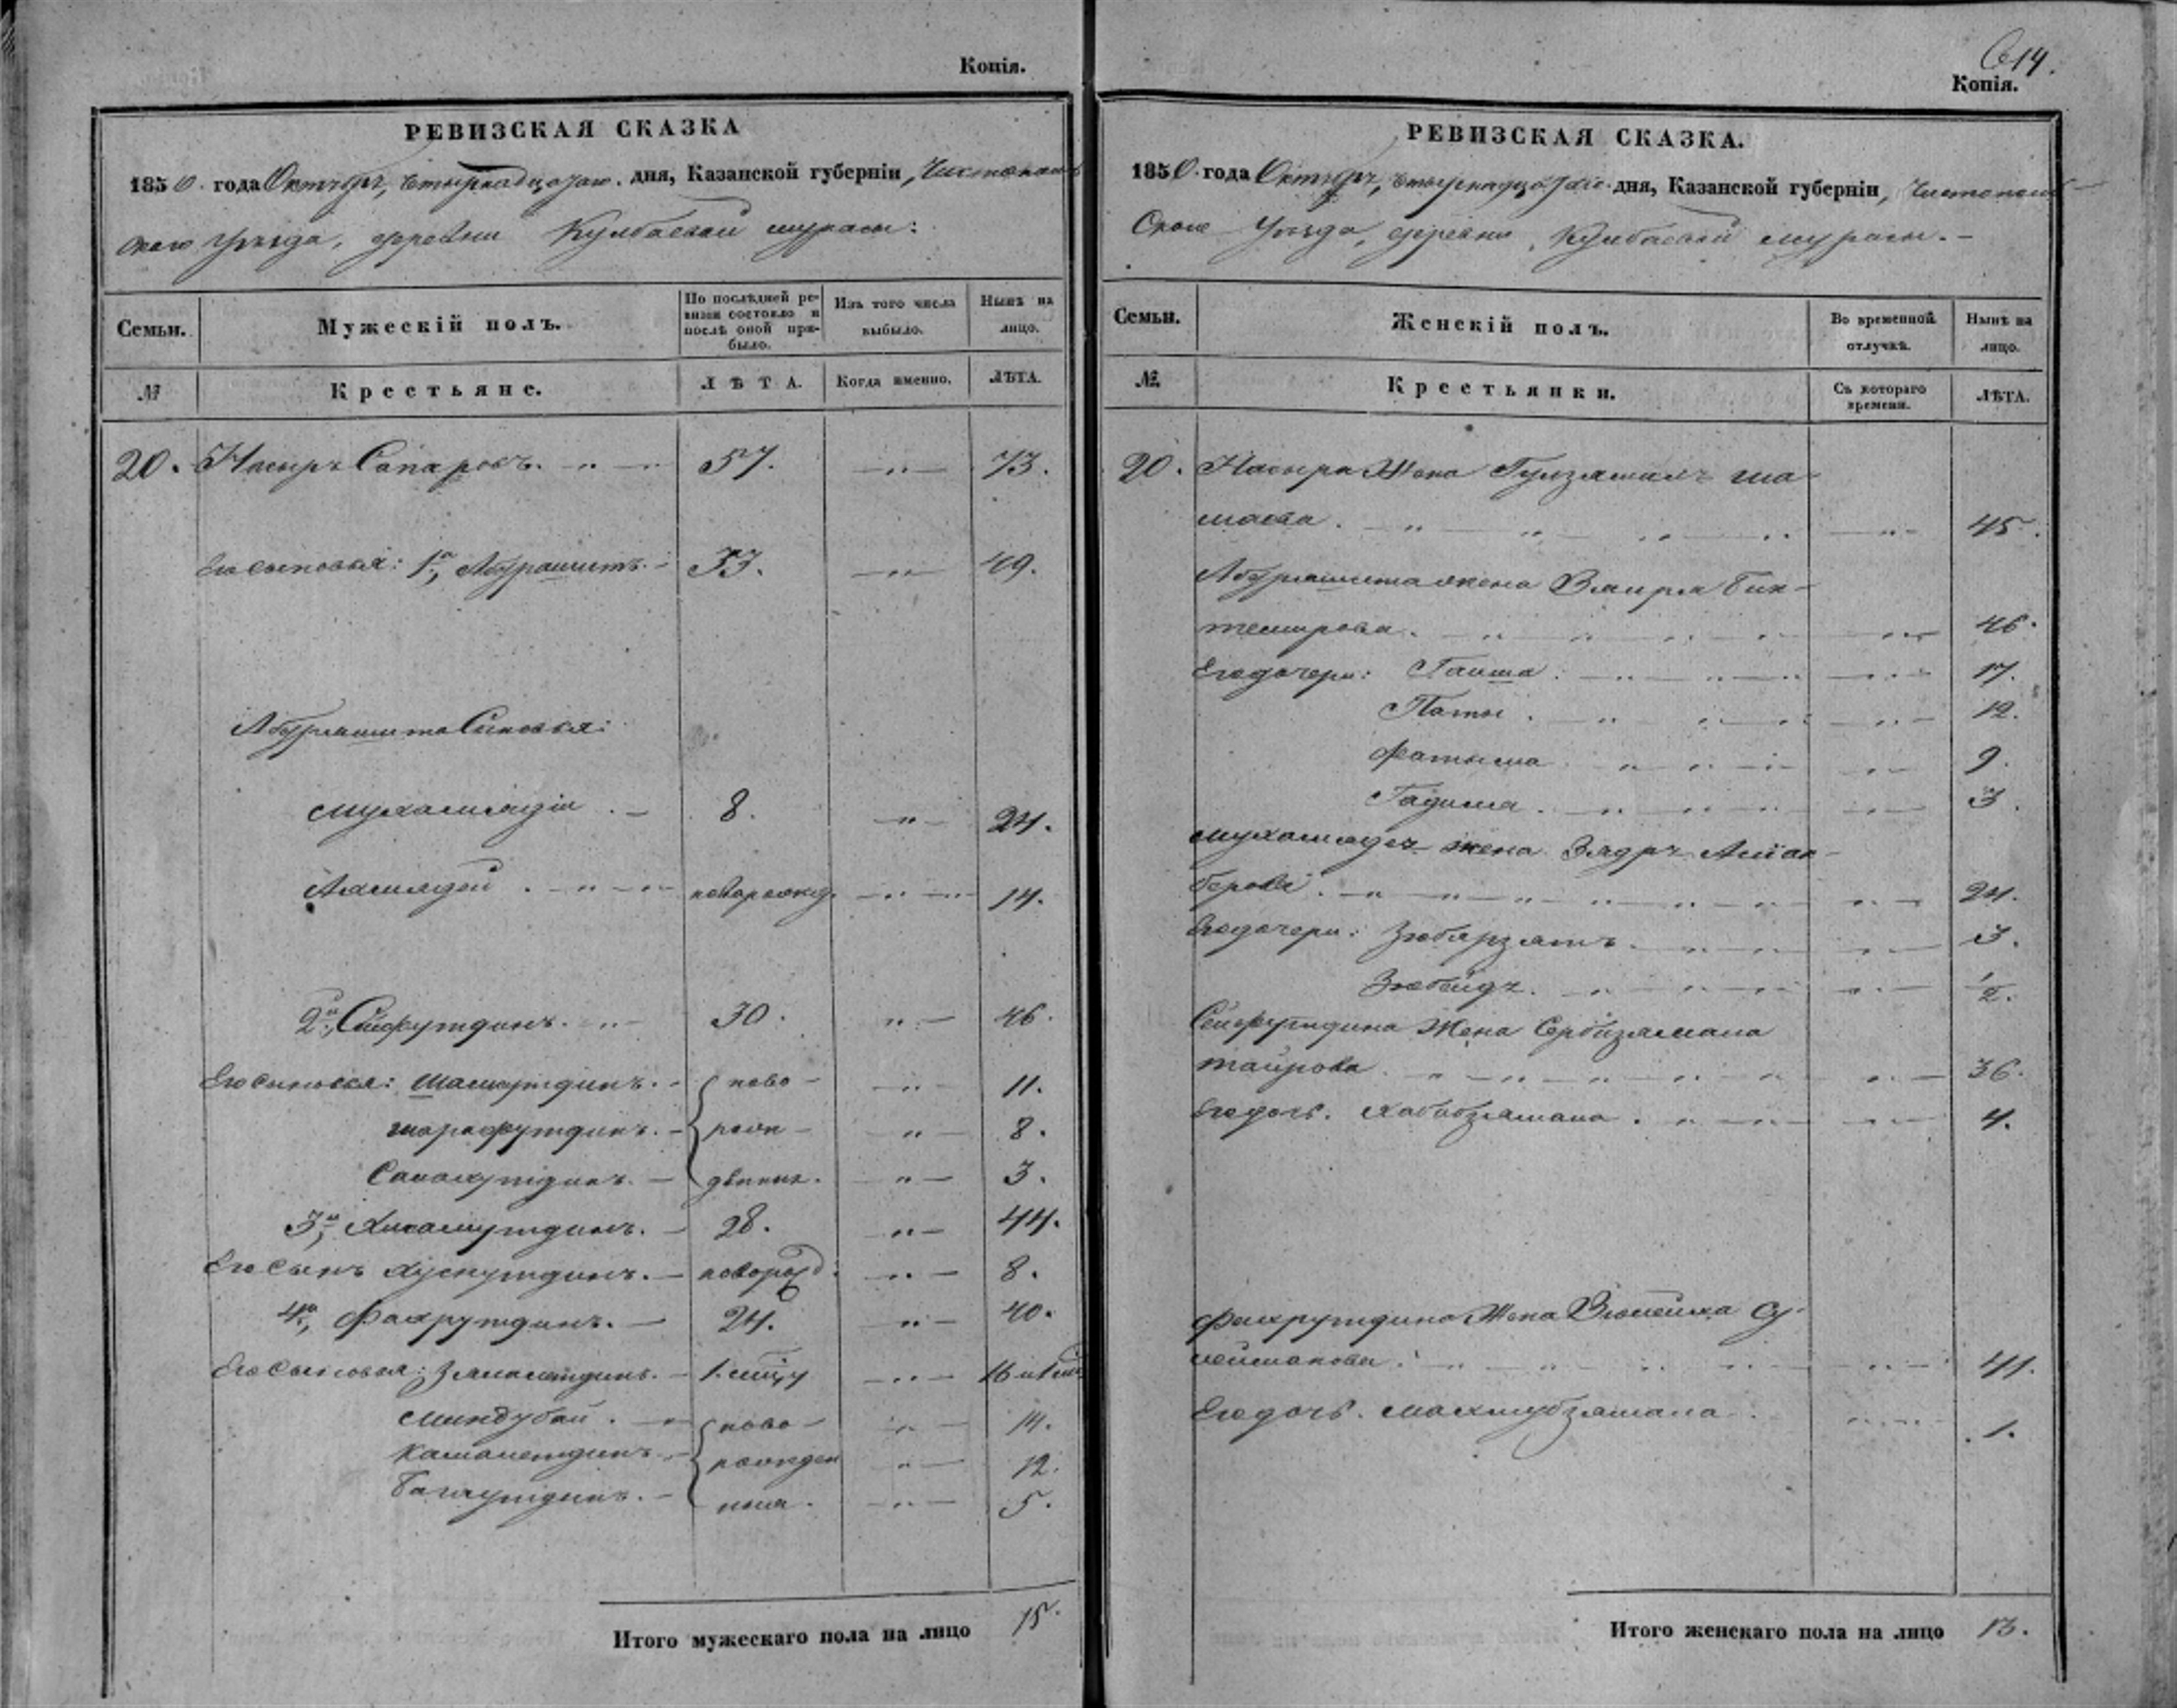 Копія.
РЕВИЗСКАЯ СКАЗКА
1850. года Октября, четырнадцатаго. дня, Казанской губерніи, Чистополь
скаго Уѣзда, деревни Кулбаевой мурасы:
Семьи. Мужескій полъ. По послѣдней ревизіи состояло и послѣ оной прибыло. Изъ того числа выбыло. Нынѣ на лицо.
№ Крестьяне. ЛѢТА. Когда именно. ЛѢТА.
20. Насыръ Сапаровъ. 57. 73.
Его сыновья: 1й, Абдрашитъ. 33. 49.
Абдрашита Сыновья:
Мухамядзи 8. 24.
Ахмядей новорожд. 14.
2й, Сейфутдинъ. 30. 46.
Его сыновья: Шамсутдинъ. ново- 11.
шарафутдинъ. рож- 8.
Салахутдинъ. денныя. 3.
3й, Хисамутдинъ. 28. 44.
Его сынъ Хуснутдинъ. новорожд. 8.
4й, Фахрутдинъ. 24. 40.
Его сыновья: Зямалетдинъ. 1. мѣсяц 16 и 1 мѣс
Миндубай. ново- 14.
Камалетдинъ. рожден 12.
Багаутдинъ. ныя. 5.
Итого мужескаго пола на лицо 15.
614.
Копія.
РЕВИЗСКАЯ СКАЗКА.
1850. года Октября, четырнадцатаго. дня, Казанской губерніи, Чистополь-
скаго Уѣзда, деревни, Кулбаевой мурасы.
Семьи. Женскій полъ. Во временной отлучкѣ. Нынѣ на лицо.
№. Крестьянки. Съ котораго времени. ЛѢТА.
20. Насыра Жена Гулзямалъ ша-
маева. 45.
Абдрашита жена Заира Бик-
темирова. 46.
Его дочери: Гаиша. 17.
Паты. 12.
Фатыма 9.
Гадима. 3.
Мухамядея жена Бядръ
24.
Его дочери: 3.
Зюбейдя. ½.
Сейфутдина Жена Сербизямала
таирова. 36.
Его дочь. Хабибзямала. 4.
Фахрутдина Жена Зюлейха Су-
леймонова. 41.
Его дочь. Махмубзямала. 1.
Итого женскаго пола на лицо 13.